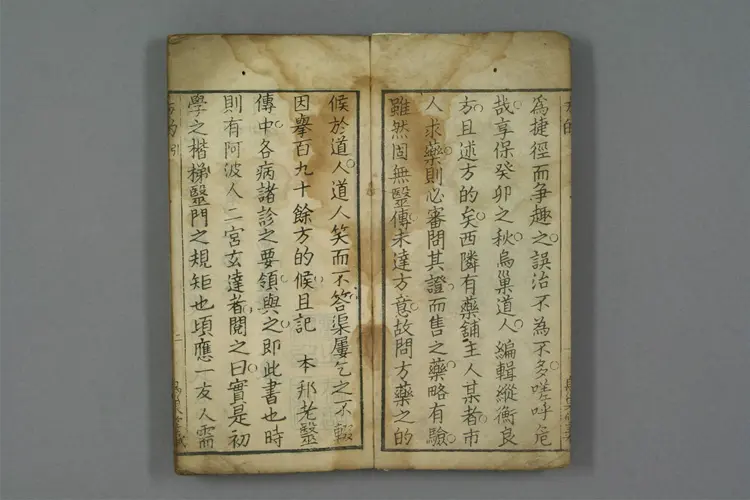 為捷徑而爭趣之誤治不為不多嗟呼危
哉享保癸卯之秋烏巢道人編輯縱衡良
方且述方的矣西隣有藥舖主人某者市
人求藥則必審問其證而售之藥略有驗
雖然固無毉傳未達方意故問方藥之的
候於道人道人笑而不答渠屢乞之不輟
因擧百九十餘方的候且記 本邦老毉
傳中各病諸診之要領與之即此書也時
則有阿波人二宮玄達者閱之曰實是初
學之楷梯毉門之規矩也頃應一友人需
方的 引
二